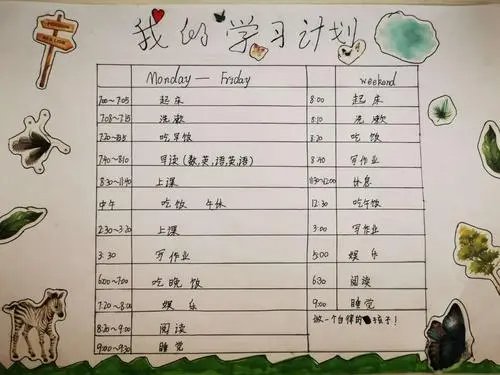 我的学习计划
Monday — Friday weekend
7:00~7:05 起床 8:00 起床
7:08~7:15 洗漱 8:10 洗漱
吃早饭 8:20 吃饭
7:40~8:10 早读(数,英,语,英语) 8:40 写作业
8:30~11:40 上课 11:30~12:00 休息
中午 吃饭 午休 12:30 吃午饭
2:30~3:20 上课 3:00 写作业
3:30 写作业 5:00 娱乐
6:00~7:00 吃晚饭 6:30 阅读
7:20~8:00 娱乐 9:00 睡觉
8:20~9:00 阅读 做一个自律的孩子!
9:00~9:30 睡觉